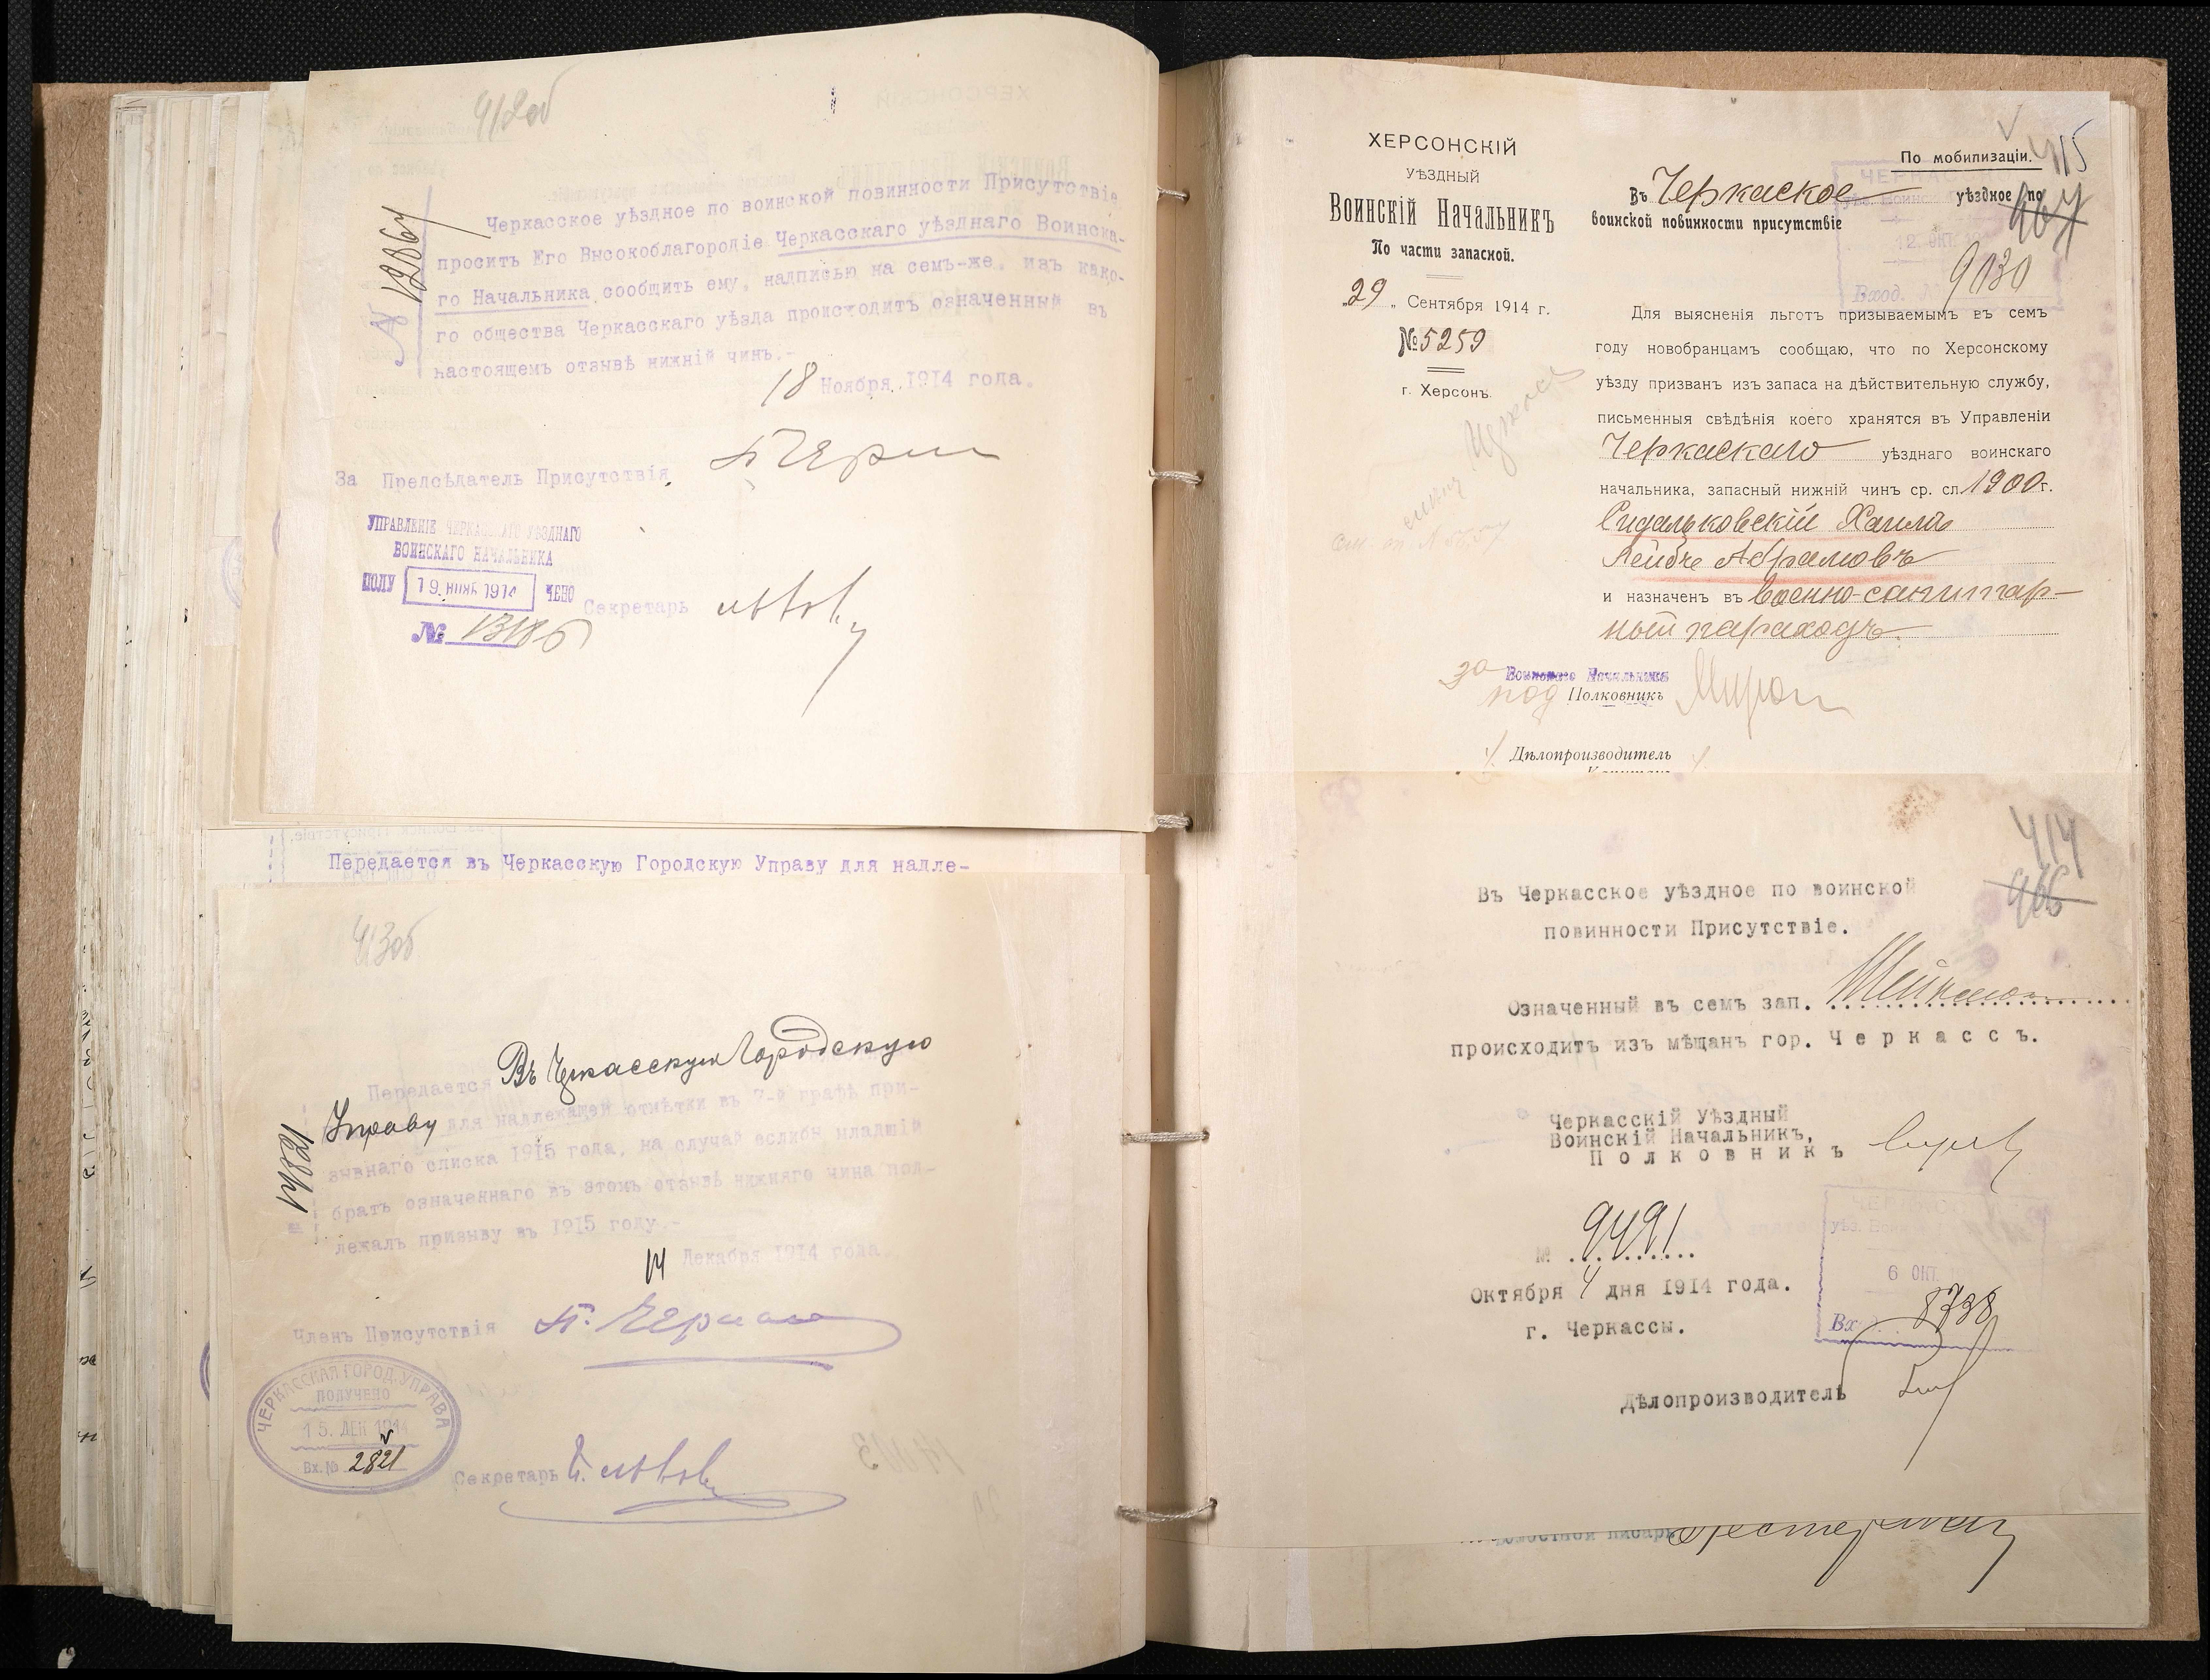 412об
N 12867
Черкасское уѣздное по воинской повинности Присутствіе
проситъ Его Высокоблагородіе Черкасскаго уѣзднаго Воинска-
го Начальника сообщить ему, надписью на семъ-же, изъ како-
го общества Черкасскаго уѣзда происходитъ означенный въ
настоящемъ отзывѣ нижній чинъ.-
18 Ноября 1914 года.
За Предсѣдатель Присутствія
УПРАВЛЕНІЕ ЧЕРКАССКАГО УѢЗДНАГО
ВОИНСКАГО НАЧАЛЬНИКА
ПОЛУ 19. НОЯБ 1914 ЧЕНО
Секретарь
№
Передается въ Черкасскую Городскую Управу для надле-
413об
Въ Черкасскую Городскую
Передается
Управу для надлежащей отмѣтки въ 7-й графѣ при-
зывнаго списка 1915 года, на случай еслибы младшій
братъ означеннаго въ этомъ отзывѣ нижняго чина под-
лежалъ призыву въ 1915 году.-
14821
14 Декабря 1914 года
Членъ Присутствія
ЧЕРКАССКАЯ ГОРОД. УПРАВА
ПОЛУЧЕНО
15. ДЕК 1914
Вх. № 2821
Секретарь
ХЕРСОНСКІЙ
УѢЗДНЫЙ
ВОИНСКІЙ НАЧАЛЬНИКЪ
По части запасной.
„29„ Сентября 1914 г.
№ 5259
г. Херсонъ.
По мобилизаціи.
415
Въ Черкаское уѣздное по
воинской повинности присутствіе
467
12. ОКТ.
Вход. № 9130
Для выясненія льготъ призываемымъ въ семъ
году новобранцамъ сообщаю, что по Херсонскому
уѣзду призванъ изъ запаса на дѣйствительную службу,
письменныя свѣдѣнія коего хранятся въ Управленіи
Черкаскаго уѣзднаго воинскаго
начальника, запасный нижній чинъ ср. сл. 1900 г.
Сидальковскій Хаимъ
Лейбъ Абрамовъ
и назначенъ въ военно-санитар-
ный пароходъ.
за Воинскаго Начальника
под Полковникъ
Дѣлопроизводитель
414
466
Въ Черкасское уѣздное по воинской
повинности Присутствіе.
Означенный въ семъ зап.
происходитъ изъ мѣщанъ гор. Черкассъ.
Черкасскій Уѣздный
Воинскій Начальникъ,
Полковникъ
№ 9491
Октября 4 дня 1914 года.
г. Черкассы.
6 ОКТ.
Вх. 8738
Дѣлопроизводитель
волостной писарь